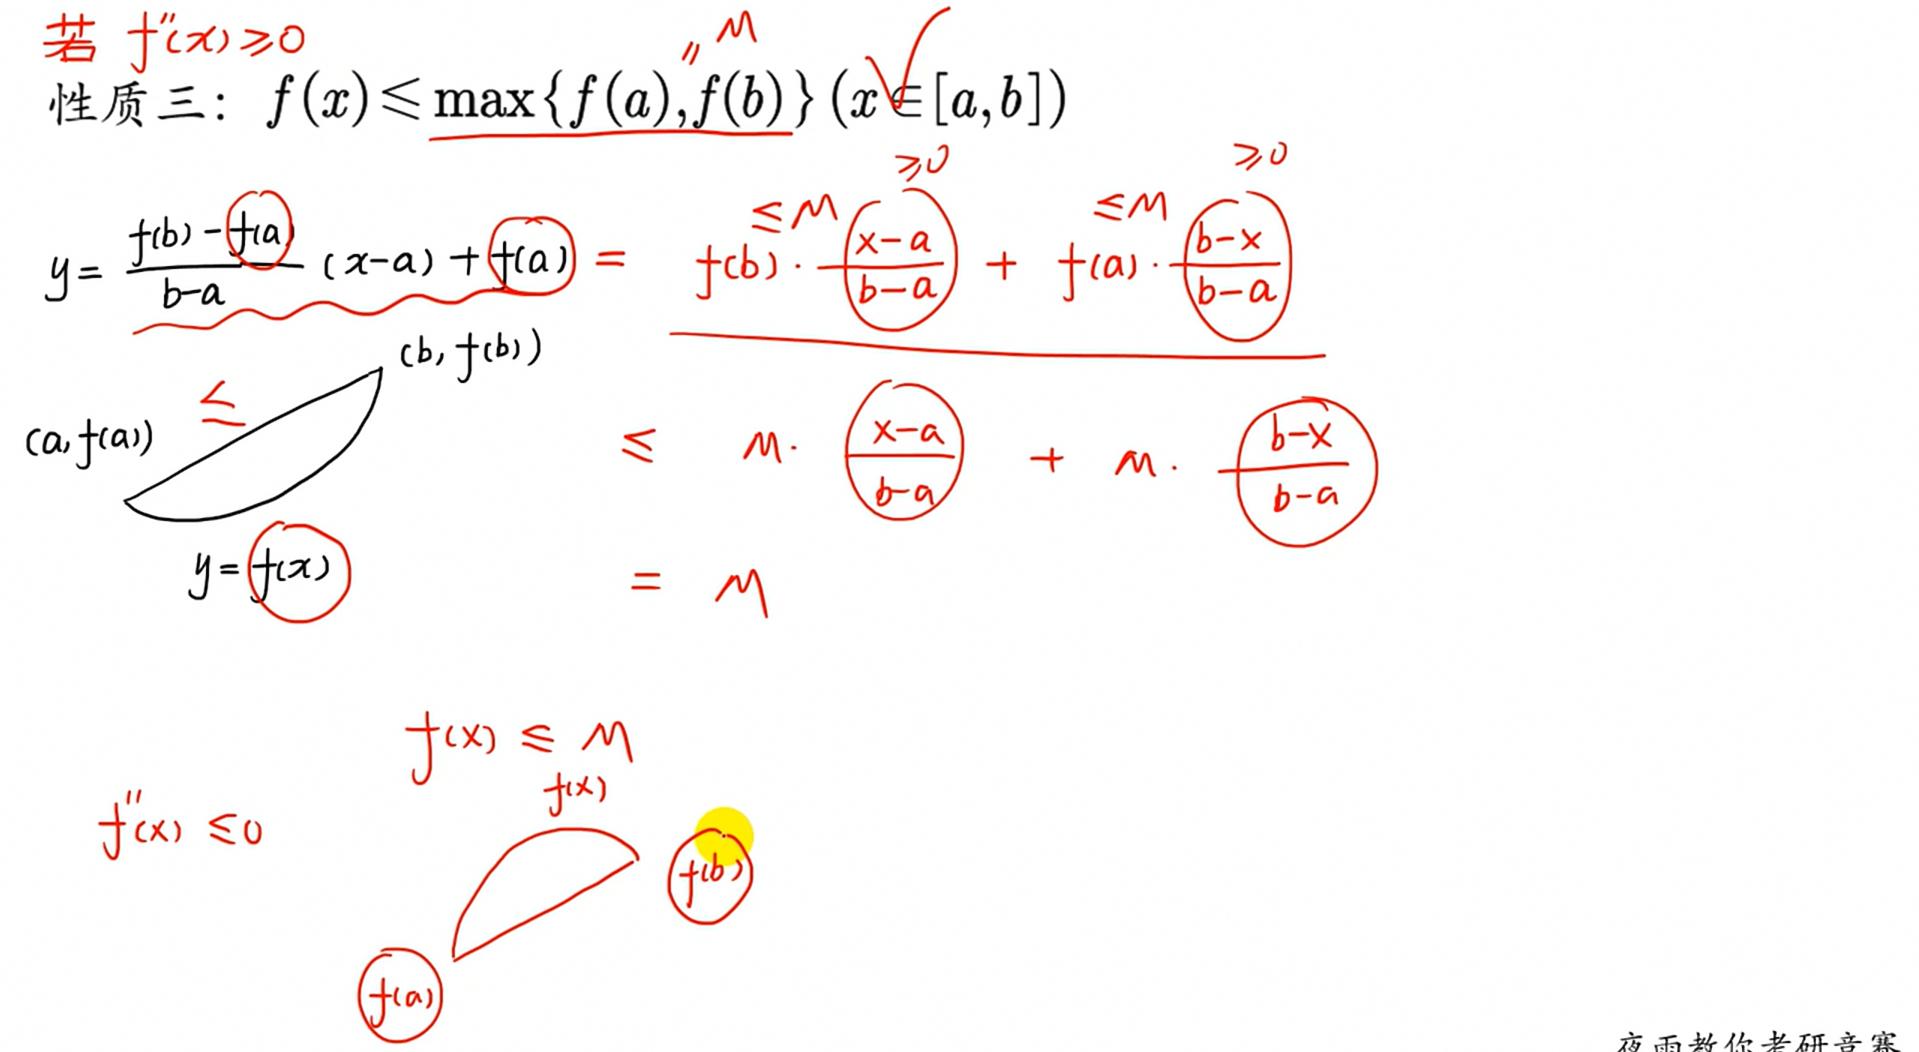 若 f''(x)≥0
" M
性质三: f(x)≤max{f(a),f(b)}(x∈[a,b])
≥0 ≥0
≤M ≤M
y= f(b)-f(a)/b-a (x-a)+f(a) = f(b)·x-a/b-a + f(a)·b-x/b-a
(b,f(b))
≤
(a,f(a))
≤ M·x-a/b-a + M·b-x/b-a
y=f(x)
= M
f(x)≤M
f(x)
f''(x)≤0
f(b)
f(a)
夜雨教你考研竞赛